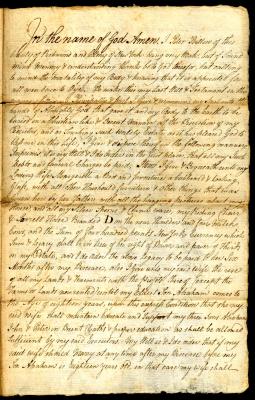 In the name of God Amen. I Peter
County of Richmond and Colony of New York being very Weak, but of Sound
mind Memory & understanding thanks be to God therefor, but calling
to mind the Mortality of my Body & knowing that it is appointed for
all men once to Dye. Do make this my Last Will & Testament in this
hands of Almighty God that gave it and my Body to the Earth to be
buried in a Christian like & Decent manner by the Discretion of my
Executors, and as Touching such worldly Estate as it has pleased God to
bestow on this life, I give & dispose thereof in the following manner
Imprimis it is my Will & I do order in the first Place, that all my Just
Debts and funeral Charges be paid. Item I give & Bequeath unto my
Loving Wife Margaretha a bed and furniture a Cubboard & Looking
Glass, with all other Household furniture & other things that was
given her by her father with all the hanging
my riding Chair
& Sorrell Horse Branded D on the near Shoulder and four Milch
Cows, and the Sum of four hundred pounds New York Currency which
Sum & Legacy shall be in lieu of her right of Dower and power of thirds
in my Estate, and I do order the above Legacy to be paid to her Six
Months after my Decease. Also I give unto my said wife the use
of all my Lands & Tenements with the Profits thereof except the
Lands now rented until my Eldest Son Abraham comes to
the Age of eighteen years, upon this express Condition that she my
said Wife shall maintain Educate and Support my three Sons Abraham
John & Peter in Decent Cloths & proper education as shall be allowed
Sufficient by my said Executors. My Will is & I do order that if my
said wife should Marry at any time after my Decease before my
Son Abraham is Eighteen years old in that case my wife shall